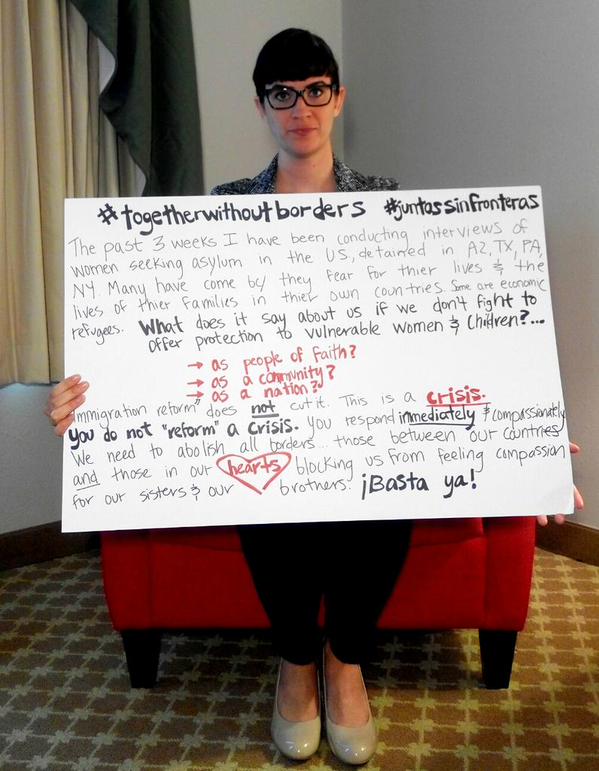 #togetherwithoutborders #juntassinfronteras
The past 3 weeks I have been conducting interviews of
women seeking asylum in the US, detained in AZ, TX, PA,
NY. Many have come bc/ they fear for thier lives & the
lives of thier families in thier own countries. Some are economic
refugees. What does it say about us if we don't fight to
offer protection to vulnerable women & children?...
→ as people of faith?
→ as a community?
→ as a nation?
Immigration reform" does not cut it. This is a crisis.
You do not "reform" a crisis. You respond immediately & compassionately
We need to abolish all borders... those between our countries
and those in our hearts blocking us from feeling compassion
for our sisters & our brothers. ¡Basta ya!